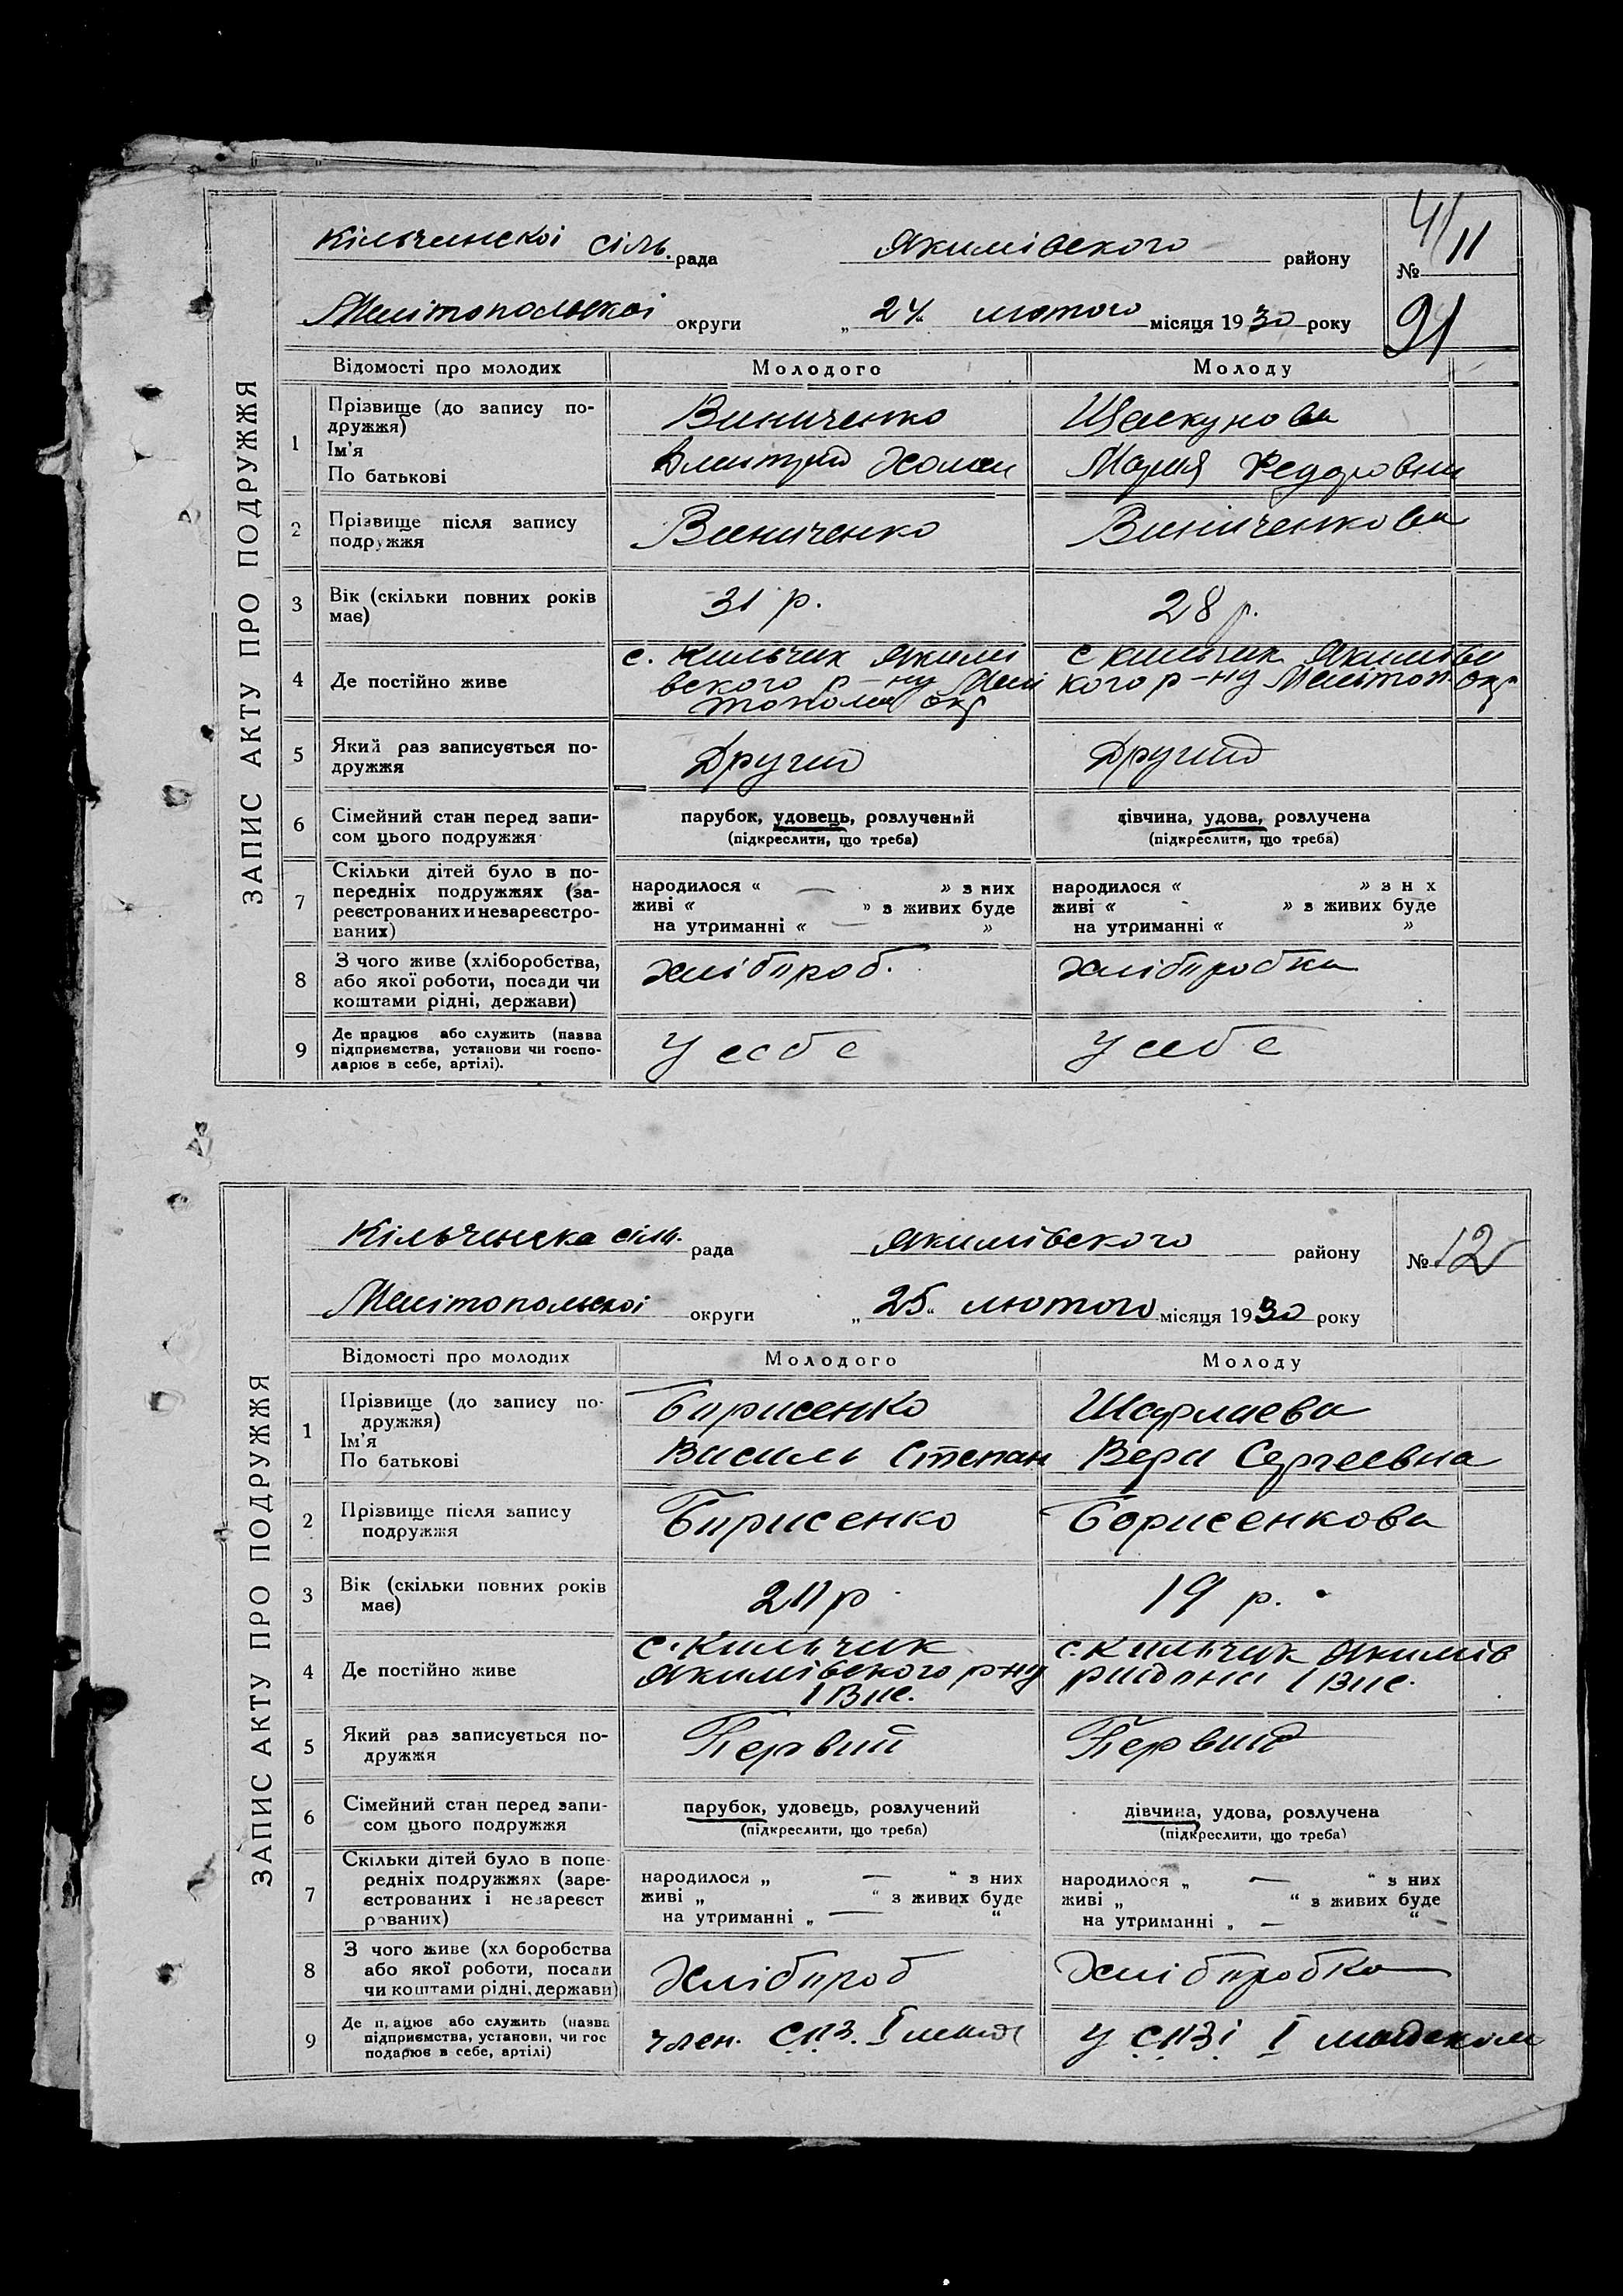 ЗАПИС АКТУ ПРО ПОДРУЖЖЯ
Кільченскоі сіль. рада Якимівского району № 11
Мелітопольскоі округи „ 24 " лютого місяця 1930 року 91
Відомості про молодих Молодого Молоду
1 Прізвище (до запису по-
дружжя)
Ім'я
По батькові
Виниченко
Дмитрий Хомин
Мария Федоровни
2 Прізвище після запису
подружжя
Виниченко Виниченкова
3 Вік (скільки повних років
має)
31 р. 28 р.
4 Де постійно живе
с. Кильчик Якимі
вского р-ну Мелі
тополя окр
с Кильчик Якимівс
кого р-ну Мелітоп. окр
5 Який раз записується по-
дружжя
Другий Другий
6 Сімейний стан перед запи-
сом цього подружжя
парубок, удовець, розлучений
(підкреслити, що треба)
дівчина, удова, розлучена
(підкреслити, що треба)
7 Скільки дітей було в по-
передніх подружжях (за-
реєстрованих и незареєстро-
ваних)
народилося « — » з них
живі « » з живих буде
на утриманні « — »
народилося « » з н х
живі « - » з живих буде
на утриманні « »
8 З чого живе (хліборобства,
або якої роботи, посади чи
коштами рідні, держави)
хлібороб. хліборобка
9 Де працює або служить (назва
підприємства, установи чи госпо-
дарює в себе, артілі).
У себе У себе
ЗАПИС АКТУ ПРО ПОДРУЖЖЯ
Кільченска сіль. рада Якимівского району № 12
Мелітопольскоі округи „ 25 " лютого місяця 1930 року
Відомості про молодих Молодого Молоду
1 Прізвище (до запису по-
дружжя)
Ім'я
По батькові
Борисенко
Василь Степан
Шарлаева
Вера Сергеевна
2 Прізвище після запису
подружжя
Борисенко Борисенкова
3 Вік (скільки повних років
має)
20 р 19 р.
4 Де постійно живе
с. Кильчик
Якимівского рну
с. Кильчик Якимів
района
5 Який раз записується по-
дружжя
Первий Первий
6 Сімейний стан перед запи-
сом цього подружжя
парубок, удовець, розлучений
(підкреслити, що треба)
дівчина, удова, розлучена
(підкреслити, що треба)
7 Скільки дітей було в попе-
редніх подружжях (заре-
єстрованих і незареєст
рованих)
народилося „ — “ з них
живі „ “ з живих буде
на утриманні „ — “
народилося „ — “ з них
живі „ “ з живих буде
на утриманні „ — “
8 З чого живе (хл боробства
або якої роботи, посади
чи коштами рідні, держави)
Хлібороб Хліборобка
9 Де працює або служить (назва
підприємства, установи, чи гос
подарює в себе, артілі)
член. СПЗ. І
у СПЗі І